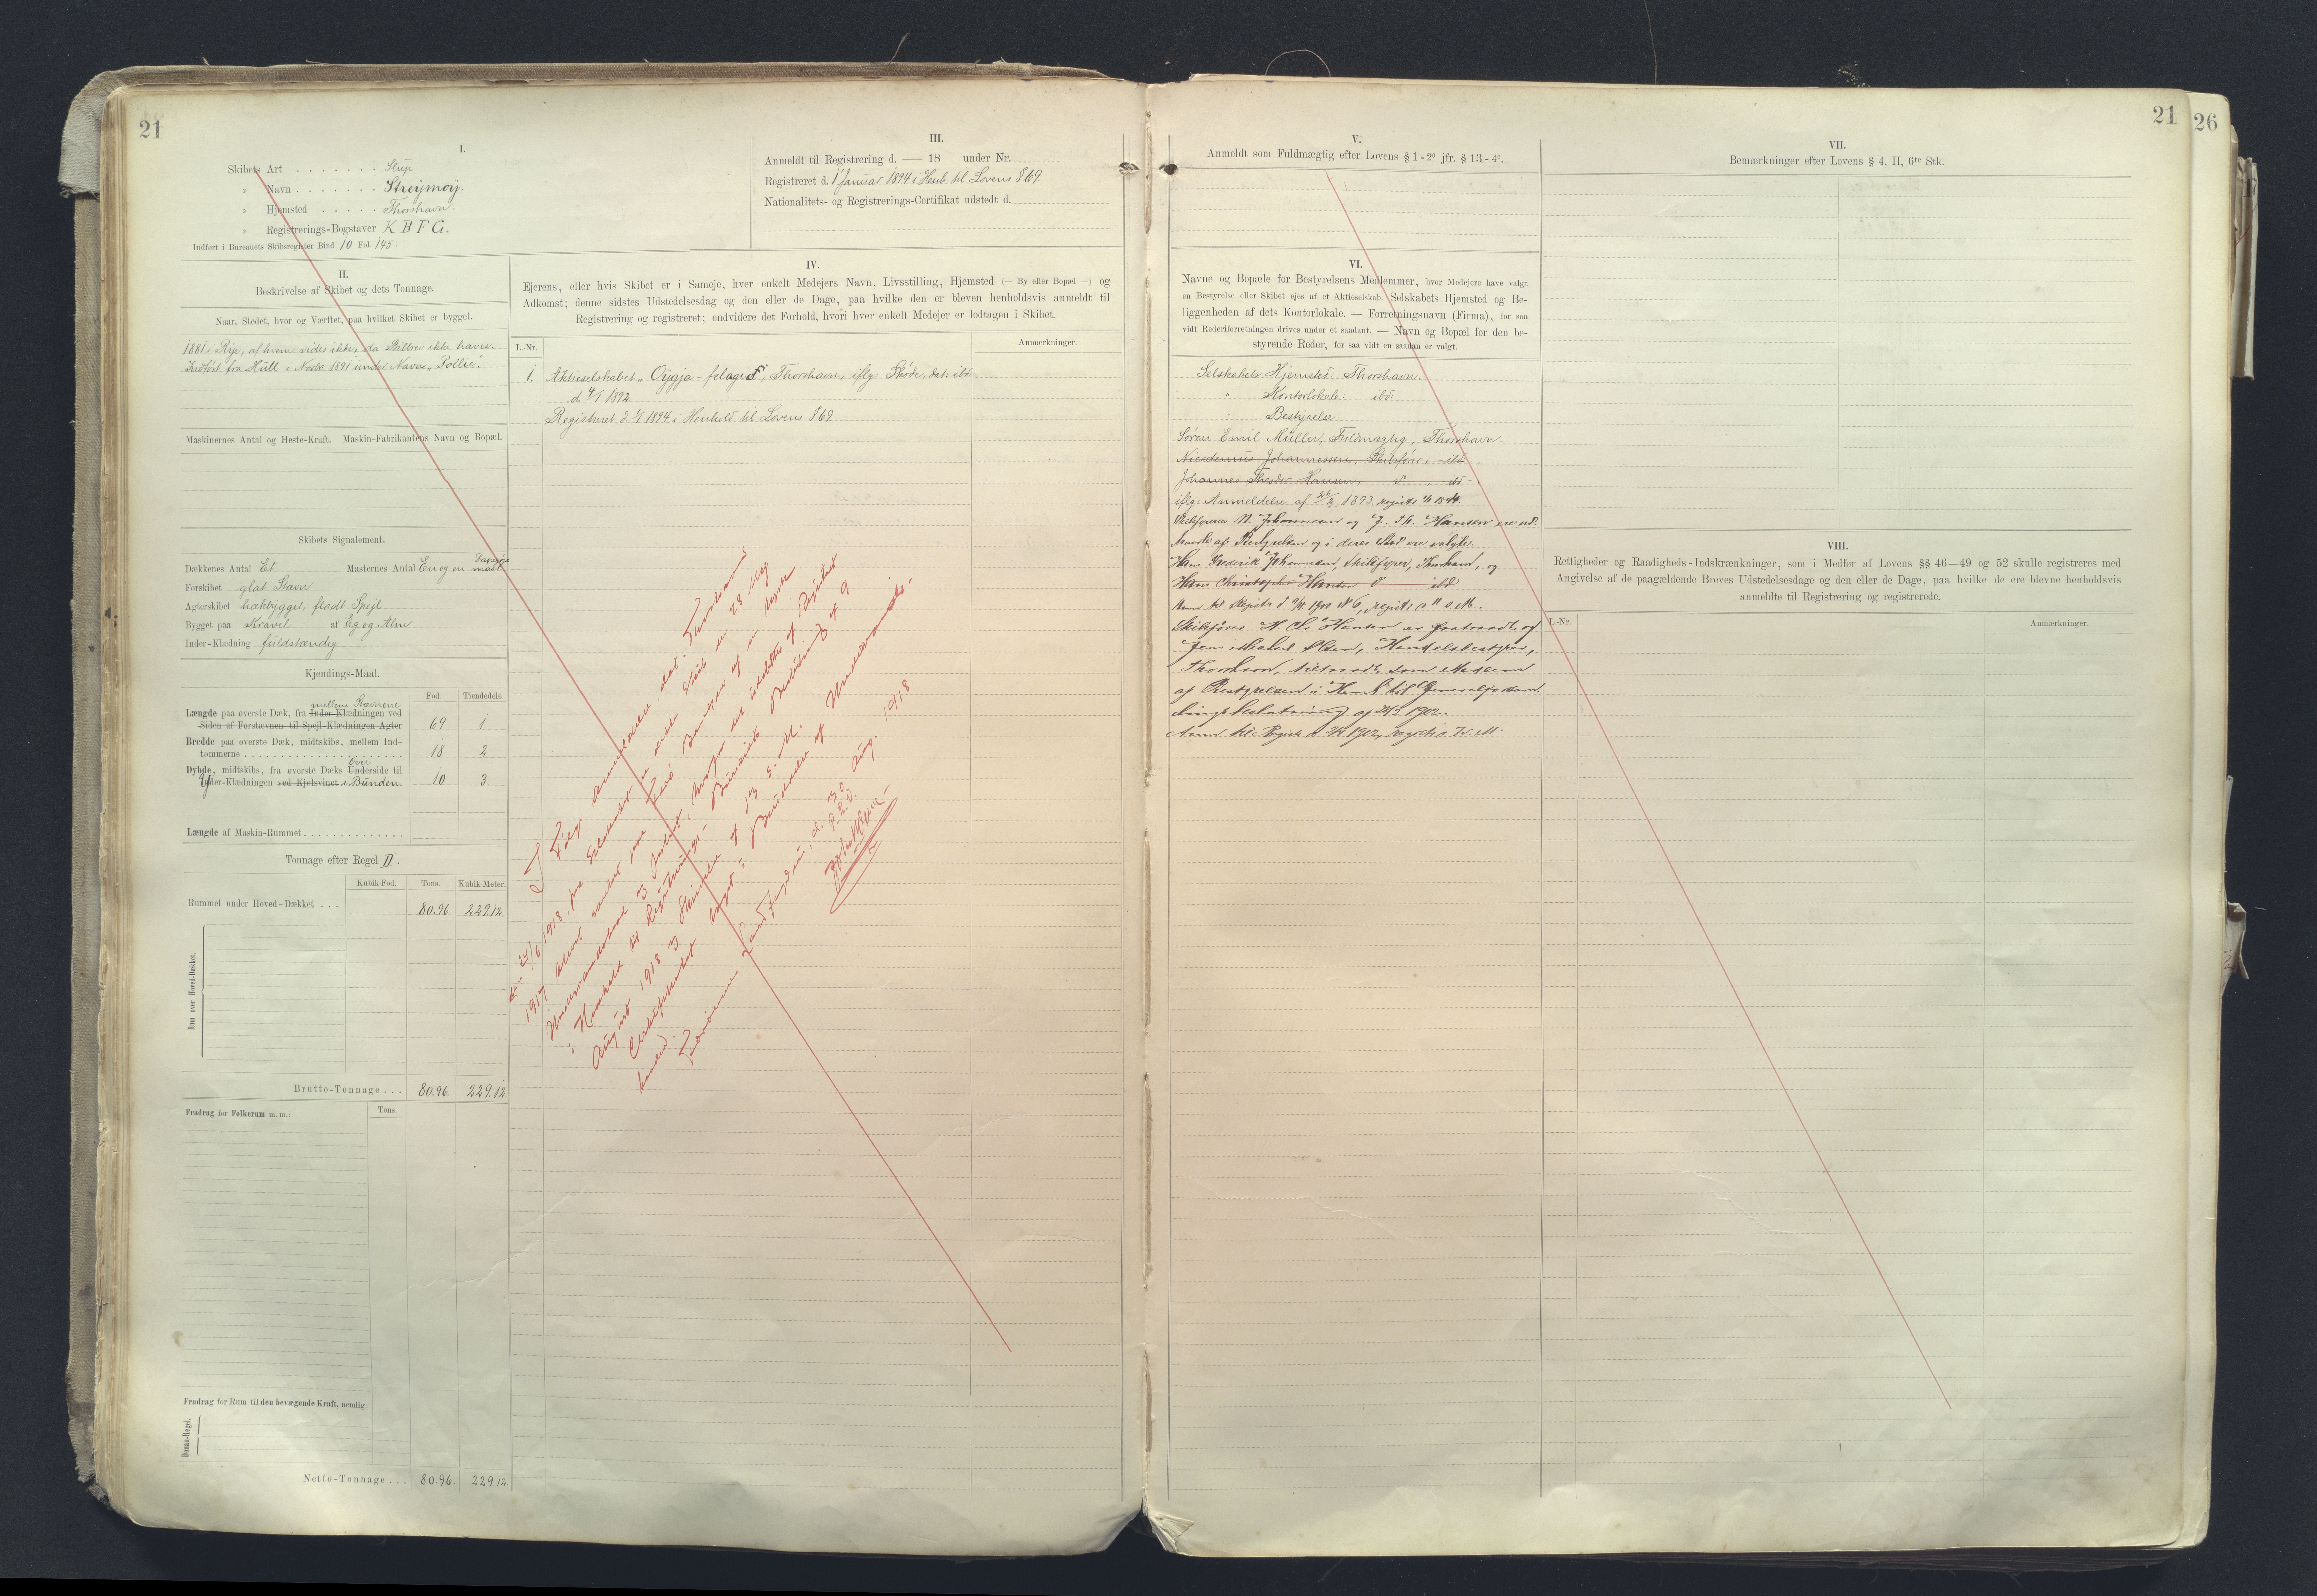 21
I.
Skibets Art . . . . . . . Slup
" Navn . . . . . . . Streymoy.
" Hjemsted . . . . . Thorshavn.
" Registrerings-Bogstaver K B F G.
Indført i Bureauets Skibsregister Bind 10 Fol. 145.
II.
Beskrivelse af Skibet og dets Tonnage.
Naar, Stedet, hvor og Værftet, paa hvilket Skibet er bygget.
1881 i Rye, af hvem vides ikke, da Bilbrev ikke haves.
Indført fra Hull i Novbr 1891 under Navn
Maskinernes Antal og Heste-Kraft. Maskin-Fabrikantens Navn og Bopæl.
Skibets Signalement.
Dækkenes Antal Et Masternes Antal En og en Papegøje mast
Forskibet glat Stavn
Agterskibet hækbygget, fladt Spejl
Bygget paa Kravel af Eg og Alm
Inder-Klædning fuldstændig
Kjendings-Maal.
Fod. Tiendedele.
mellem Stævnene
Længde paa øverste Dæk, fra Inder-Klædningen ved
Siden af Forstævnen til Spejl-Klædningen Agter 69 1
Bredde paa øverste Dæk, midtskibs, mellem Ind-
tømmerne . . . . . . . . . . 18 2
Over
Dybde, midtskibs, fra øverste Dæks Underside til
Inder-Klædningen ved Kjølsvinet i Bunden. 10 3
Længde af Maskin-Rummet . . . . . . . . . . . . . .
Tonnage efter Regel II.
Kubik-Fod. Tons. Kubik-Meter.
Rummet under Hoved-Dækket . . . 80.96 229.12.
Rum over Hoved-Dækket.
Brutto-Tonnage . . . 80.96. 229.12
Fradrag for Folkerum m. m.: Tons.
Fradrag for Rum til den bevægende Kraft, nemlig:
Donau-Regel.
Netto-Tonnage . . . 80.96. 229.12.
III.
Anmeldt til Registrering d. — 18 under Nr.
Registreret d. 1 Januar 1894 i Henh. til Lovens § 69.
Nationalitets- og Registrerings-Certifikat udstedt d.
IV.
Ejerens, eller hvis Skibet er i Sameje, hver enkelt Medejers Navn, Livsstilling, Hjemsted (— By eller Bopæl —) og
Adkomst; denne sidstes Udstedelsesdag og den eller de Dage, paa hvilke den er bleven henholdsvis anmeldt til
Registrering og registreret; endvidere det Forhold, hvori hver enkelt Medejer er lodtagen i Skibet.
L.-Nr. Anmærkninger.
1. Aktieselskabet Thorshavn, iflg. Skøde, dat. ibd.
d 4/1 1892
Registreret d 1/1 1894 i Henhold til Lovens § 69
I Følge Anmeldelse dat. Thorshavn
den 24/6 1918 fra Selskabet er dette Skib den 28 Maj
1917 blevet sænket paa Færø Banken af en tysk
Undervandsbaad
i Henhold til Registrerings-Bureauets Meddelelse af 9
August 1918 og Skrivelse af 13 s. M.
Certifikatet
Færøernes Landfogderi, d. 30 Aug. 1918
P. L. V.
21
26
V.
Anmeldt som Fuldmægtig efter Lovens § 1 - 2° jfr. § 13 - 4°.
VI.
Navne og Bopæle for Bestyrelsens Medlemmer, hvor Medejere have valgt
en Bestyrelse eller Skibet ejes af et Aktieselskab: Selskabets Hjemsted og Be-
liggenheden af dets Kontorlokale. — Forretningsnavn (Firma), for saa
vidt Rederiforretningen drives under et saadant. — Navn og Bopæl for den be-
styrende Reder, for saa vidt en saadan er valgt.
Selskabets Hjemsted: Thorshavn.
" Kontorlokale: ibd.
" Bestyrelse:
Søren Emil Müller, Fuldmægtig, Thorshavn.
Nicodemus Johannessen, Skibsfører, ibd.
Johannes Theodor Hansen, d , ibd
iflg: Anmeldelse af 1893 registr 1/1 1894.
Skibsførerne N. Johannesen og J. Th. Hansen ere ud-
traadte af Bestyrelsen og i deres Sted ere valgte:
Hans Frederik Johannesen, Skibsfører, Thorshavn, og
Hans Christopher Hansen d ibd
Skibsfører H. Chr. Hansen er fratraadt og
Jens Michael Olsen, Handelsbestyrer,
Thorshavn, tiltraadt som Medlem
af Bestyrelsen i Henh. til Generalforsam-
lings beslutning af 1902.
VII.
Bemærkninger efter Lovens § 4, II, 6te Stk.
VIII.
Rettigheder og Raadigheds-Indskrænkninger, som i Medfør af Lovens §§ 46—49 og 52 skulle registreres med
Angivelse af de paagældende Breves Udstedelsesdage og den eller de Dage, paa hvilke de ere blevne henholdsvis
anmeldte til Registrering og registrerede.
L.-Nr. Anmærkninger.